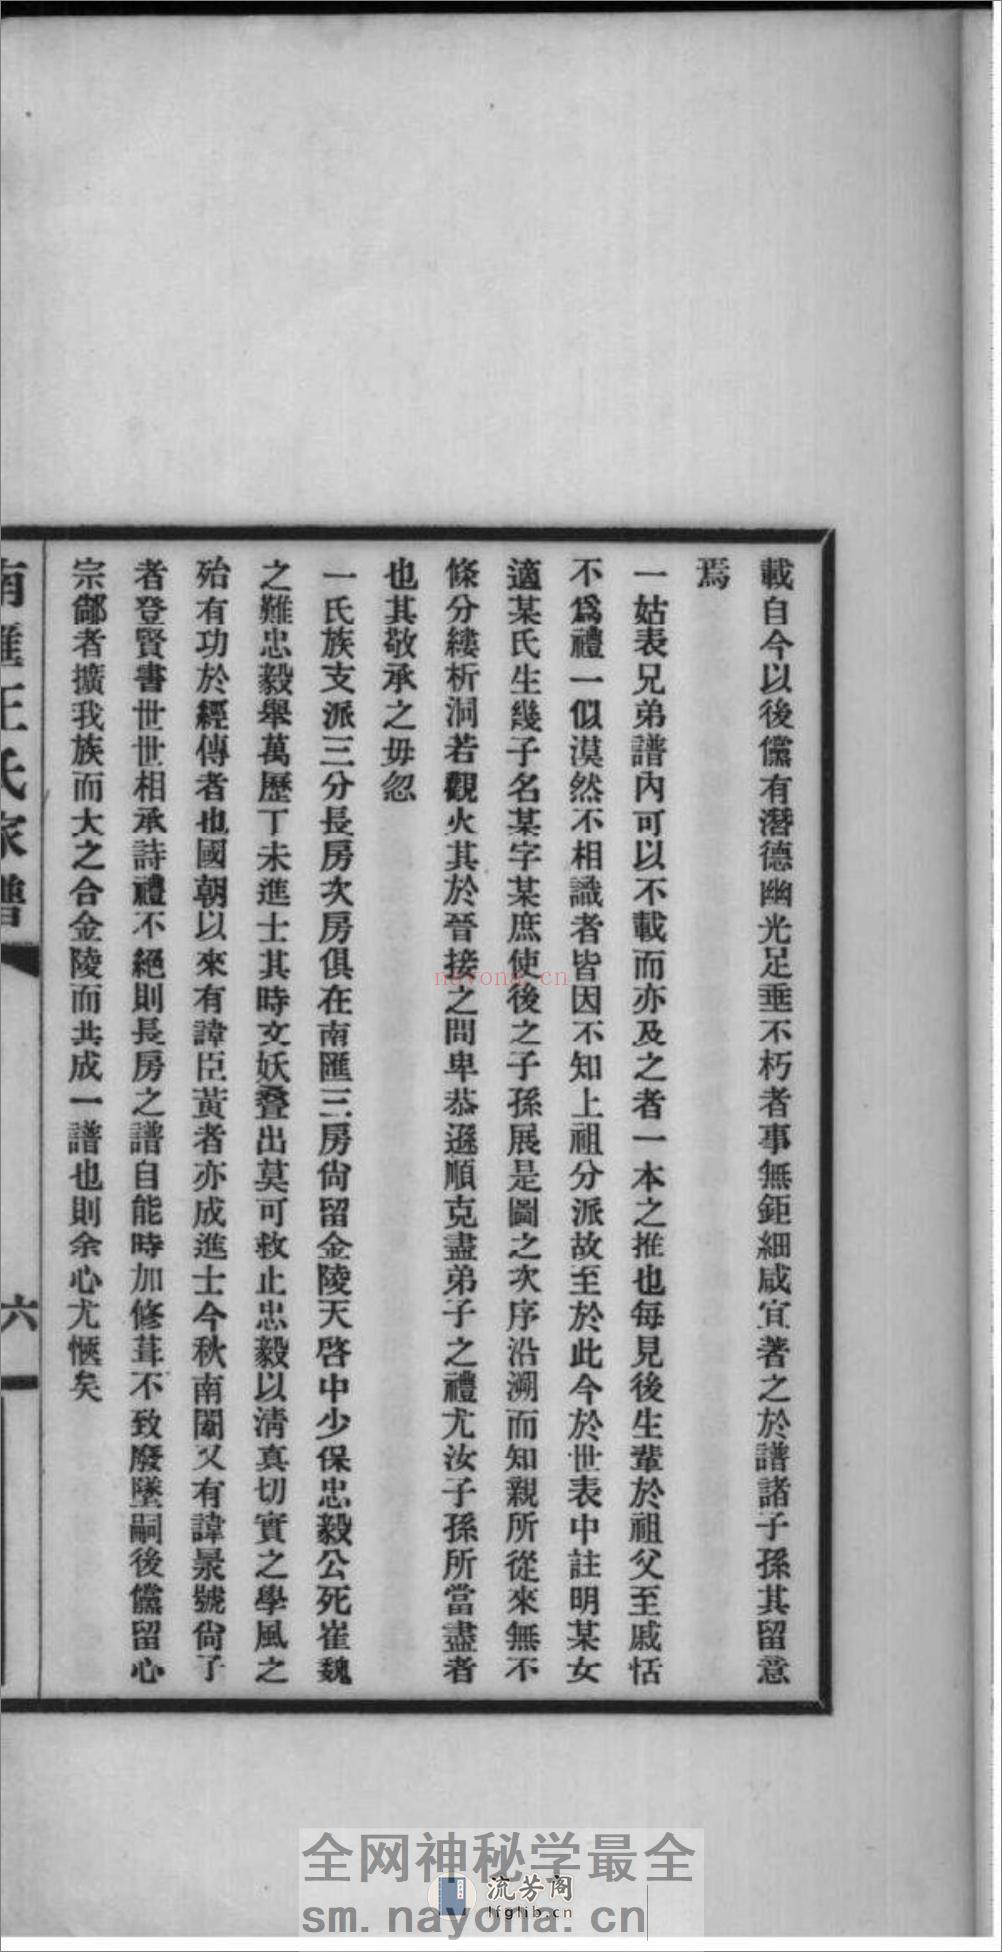 載自今以後儻有潛德幽光足垂不朽者事無鉅細咸宜著之於譜諸子孫其留意
焉
一姑表兄弟譜內可以不載而亦及之者一本之推也每見後生輩於祖父至戚恬
不爲禮一似漠然不相識者皆因不知上祖分派故至於此今於世表中註明某女
適某氏生幾子名某字某庶使後之子孫展是圖之次序沿溯而知親所從來無不
條分縷析洞若觀火其於晉接之間卑恭遜順克盡弟子之禮尤汝子孫所當盡者
也其敬承之毋忽
一氏族支派三分長房次房俱在南匯三房尙留金陵天啓中少保忠毅公死崔魏
之難忠毅舉萬歷丁未進士其時文妖疊出莫可救止忠毅以淸真切實之學風之
殆有功於經傳者也國朝以來有諱臣黃者亦成進士今秋南闈又有諱景號尙子
者登賢書世世相承詩禮不絕則長房之譜自能時加修葺不致廢墜嗣後儻留心
宗鄰者擴我族而大之合金陵而共成一譜也則余心尤愜矣
南匯王氏家譜
六
nayona.cn
全网神秘学最全
流芳阁
lfglib.cn
sm.nayona.cn